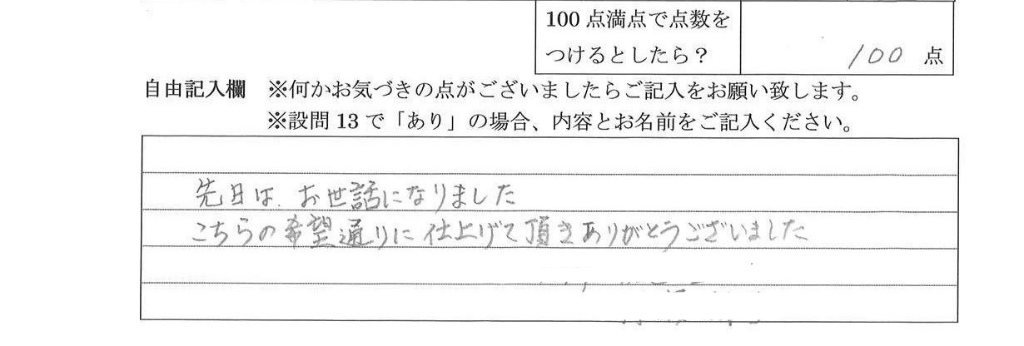 100 点満点で点数を
つけるとしたら？
100 点
自由記入欄 ※何かお気づきの点がございましたらご記入をお願い致します。
※設問 13 で「あり」の場合、内容とお名前をご記入ください。
先日は、お世話になりました
こちらの希望通りに仕上げて頂きありがとうございました